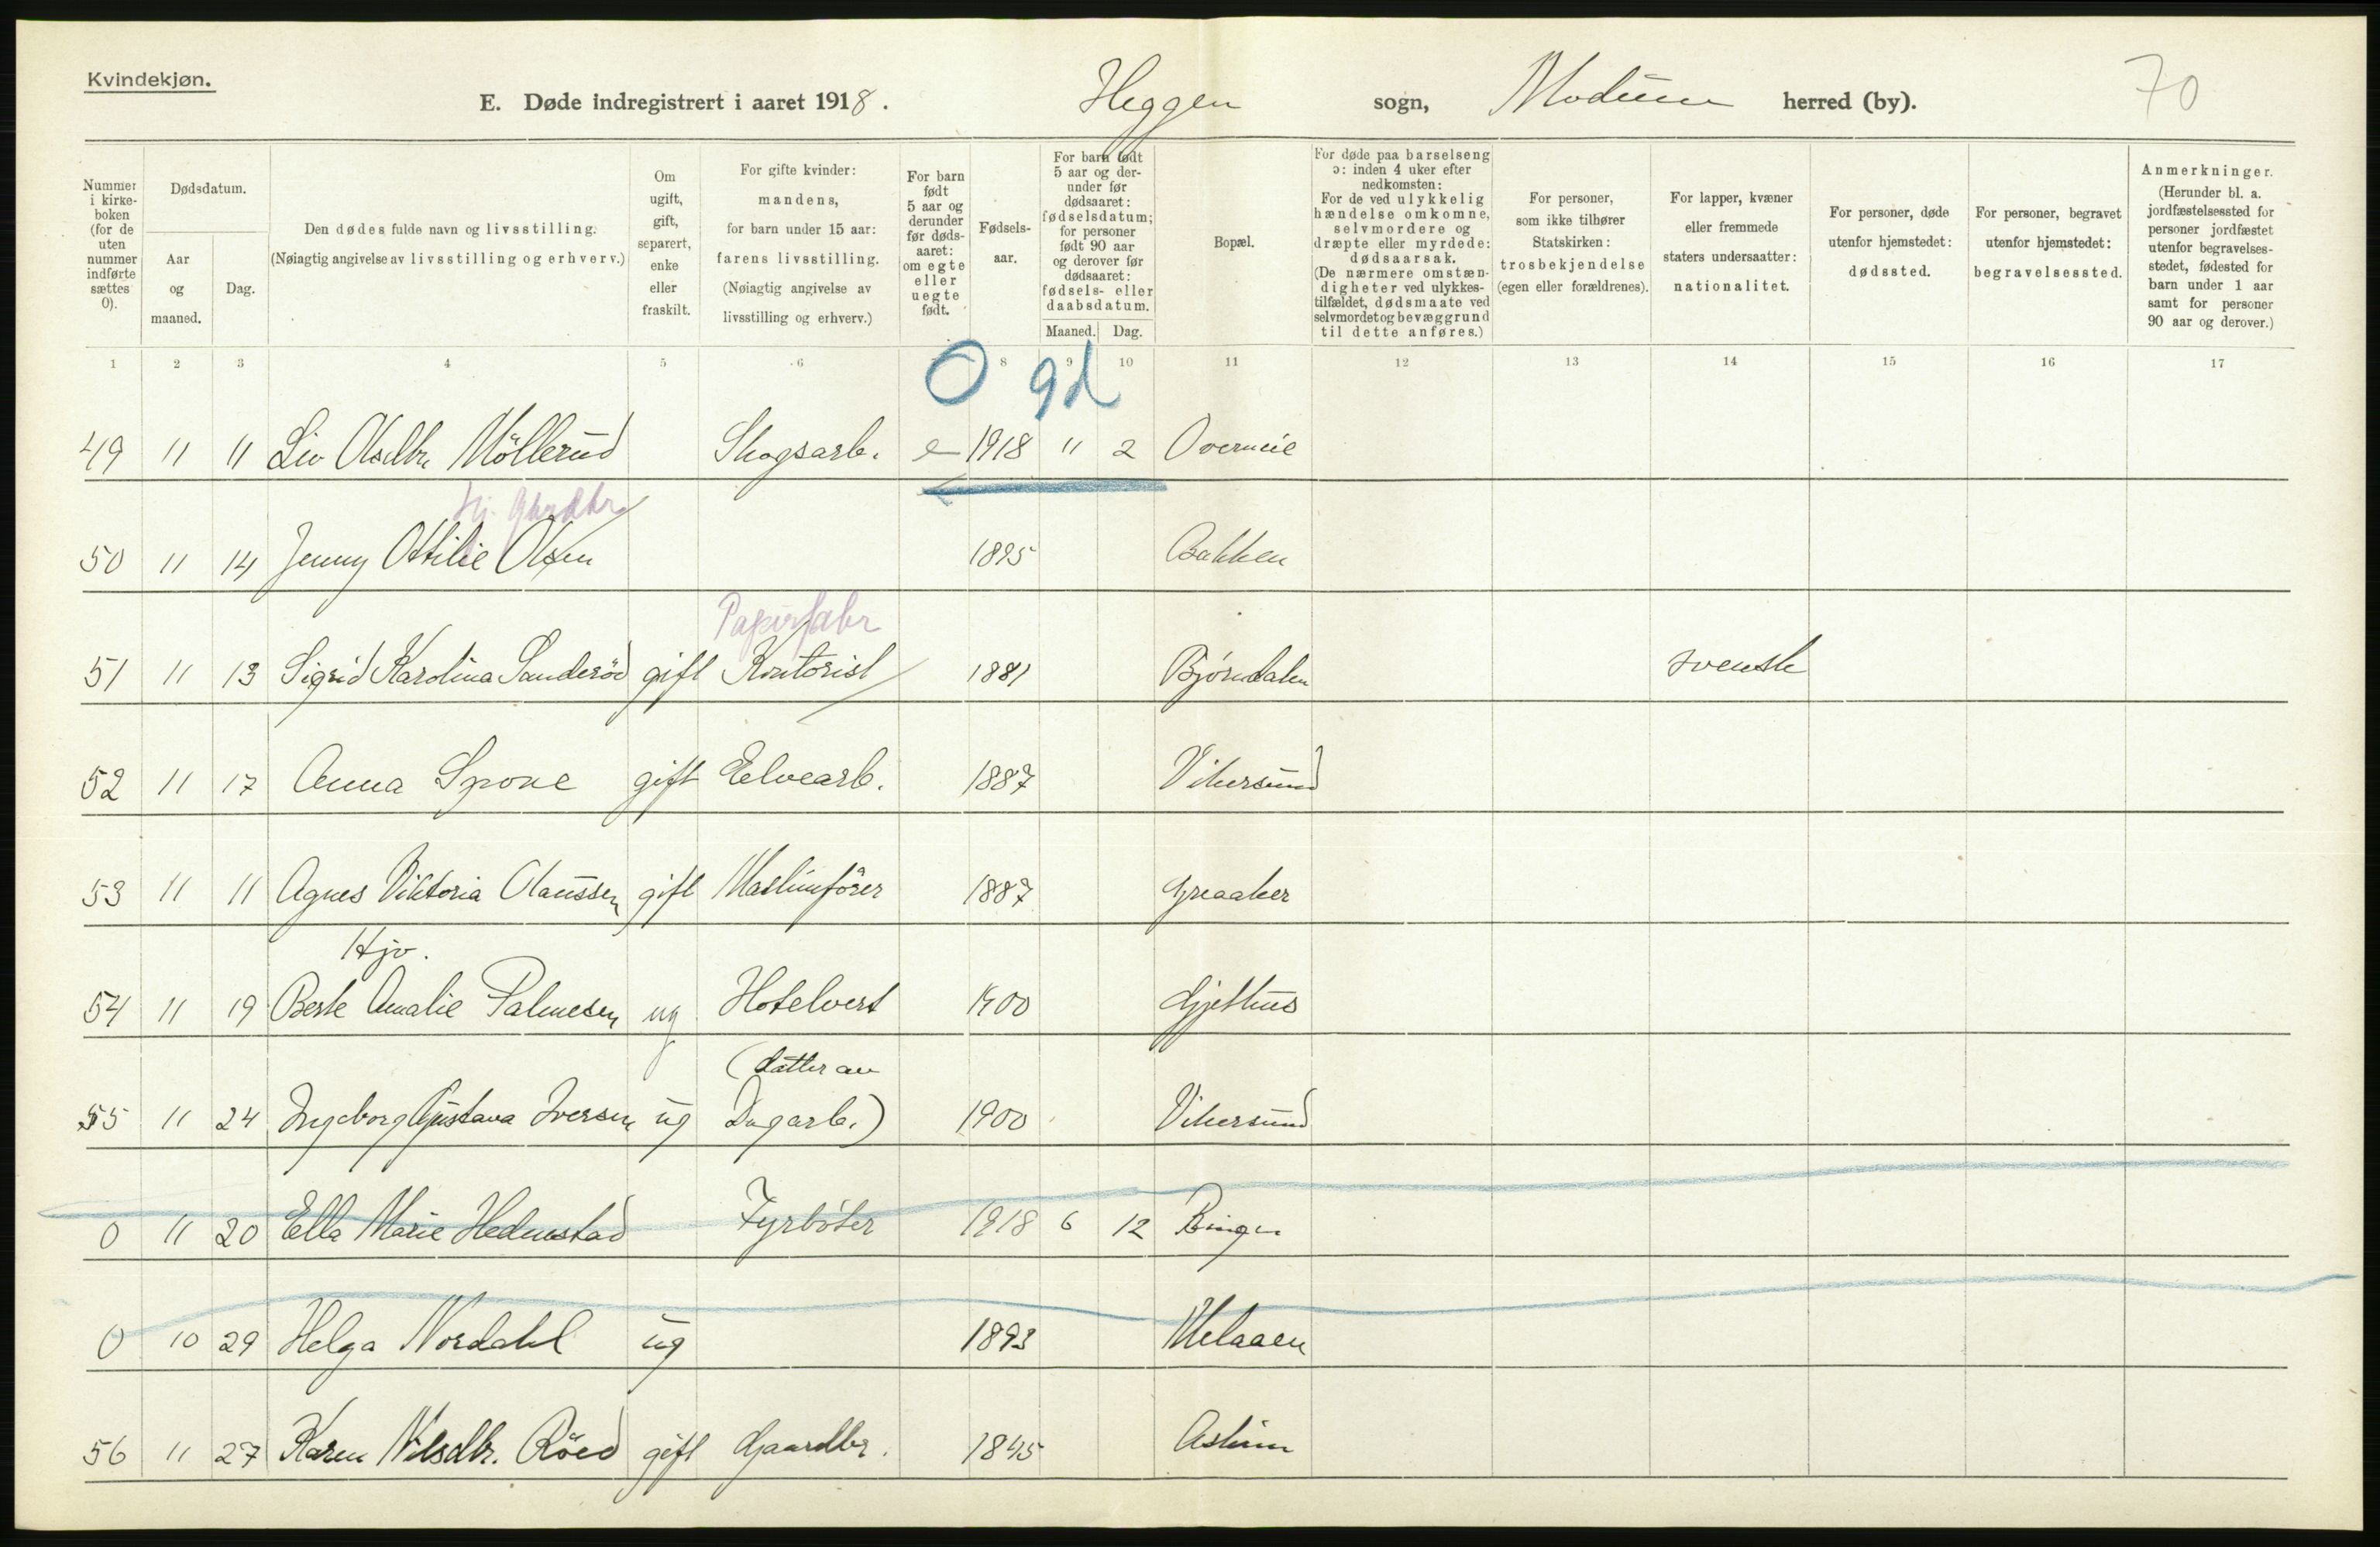 Kvindekjøn.
E. Døde indregistrert i aaret 1918. Heggen sogn, Modum herred (by). 70
Nummer i kirkeboken (for de uten nummer indførte sættes 0).
Dødsdatum.
Aar og maaned.
Dag.
Den dødes fulde navn og livsstilling.
(Nøiagtig angivelse av livsstilling og erhverv.)
Om ugift, gift, separert, enke eller fraskilt.
For gifte kvinder: mandens, for barn under 15 aar: farens livsstilling. (Nøiagtig angivelse av livsstilling og erhverv.)
For barn født 5 aar og derunder før dødsaaret: om egte eller uegte født.
Fødselsaar.
For barn født 5 aar og derunder før dødsaaret: fødselsdatum; for personer født 90 aar og derover før dødsaaret: fødsels- eller daabsdatum.
Maaned. Dag.
Bopæl.
For døde paa barselseng ɔ: inden 4 uker efter nedkomsten: For de ved ulykkelig hændelse omkomne, selvmordere og dræpte eller myrdede: dødsaarsak. (De nærmere omstændigheter ved ulykkestilfældet, dødsmaate ved selvmordet og bevæggrund til dette anføres.)
For personer, som ikke tilhører Statskirken: trosbekjendelse (egen eller forældrenes).
For lapper, kvæner eller fremmede staters undersaatter: nationalitet.
For personer, døde utenfor hjemstedet: dødssted.
For personer, begravet utenfor hjemstedet: begravelsessted.
Anmerkninger. (Herunder bl. a. jordfæstelsessted for personer jordfæstet utenfor begravelsesstedet, fødested for barn under 1 aar samt for personer 90 aar og derover.)
1 2 3 4 5 6 8 9 10 11 12 13 14 15 16 17
0 9d
49 11 11 Liv Olsdtr. Möllerud Skogsarb. e 1918 11 2 Overneie
Hj. Gbrdtr.
50 11 14 Jenny Ottilie Olsen 1895 Bakken
Papirfabr
51 11 13 Sigrid Karolina Sanderöd gift Kontorist 1881 Bjørndalen svensk
52 11 17 Anna Spone gift Elvearb. 1887 Vikersund
53 11 11 Agnes Viktoria Claussen gift Maskinförer 1887 Greaaker
Hjv.
54 11 19 Berte Amalie Palmesen ug Hotelvert 1900 Gjethus
(datter av
55 11 24 Ingeborg Gustava Iversen ug Dagarb.) 1900 Vikersund
0 11 20 Ella Marie Hedenstad Fyrböter 1918 6 12 Bingen
0 10 29 Helga Nordahl ug 1893 Melaaen
56 11 27 Karen Nilsdtr. Röed gift Gaardbr. 1845 Askim